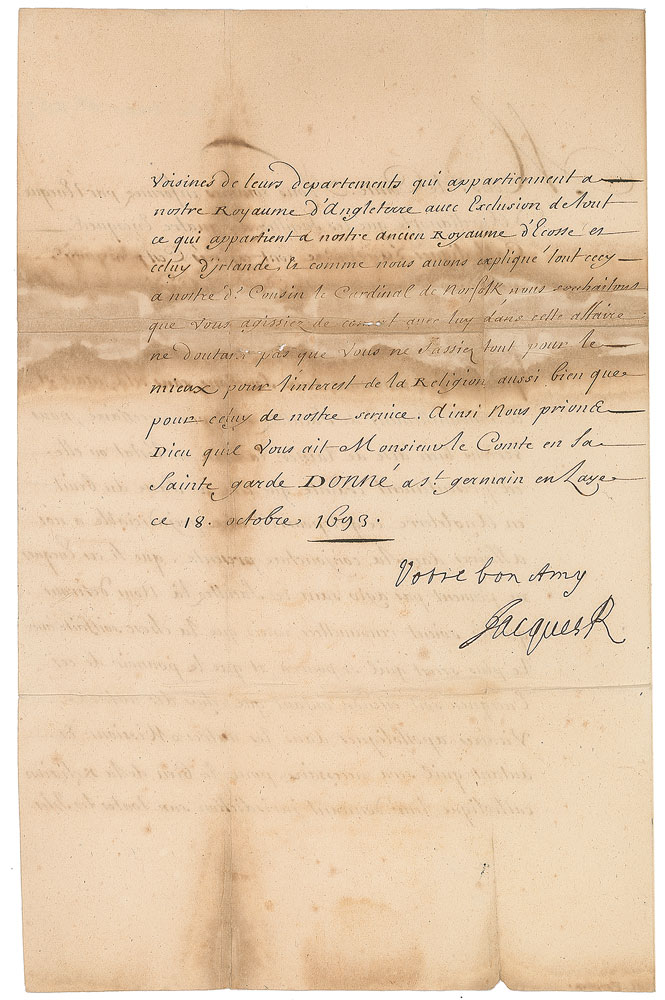 Voisines de leurs departements qui appartiennent a
nostre Royaume d'Angleterre avec Exclusion de tout
ce qui appartient a nostre ancien Royaume d'Ecosse et
celuy d'jrlande, Et comme nous auons expliqué tout cecy
a nostre d.t Cousin le Cardinal de Norfolk nous souhaitons
que Vous agissiez de concert avec luy dans cette affaire
ne doutant pas que Vous ne fassiez tout pour le
mieux pour l'interest de la Religion aussi bien que
pour celuy de nostre seruice. Ainsi Nous prions
Dieu qu'il Vous ait Monsieur le Comte en sa
Sainte garde DONNÉ a s.t germain en Laye
ce 18. octobre 1693.
Votre bon Amy
Jacques R